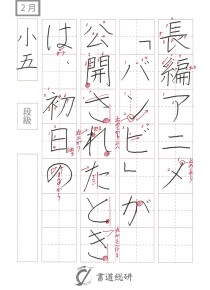 2月
長編アニメ
「バンビ」が
公開されたとき
は、初日の
小五
段級
書道総研